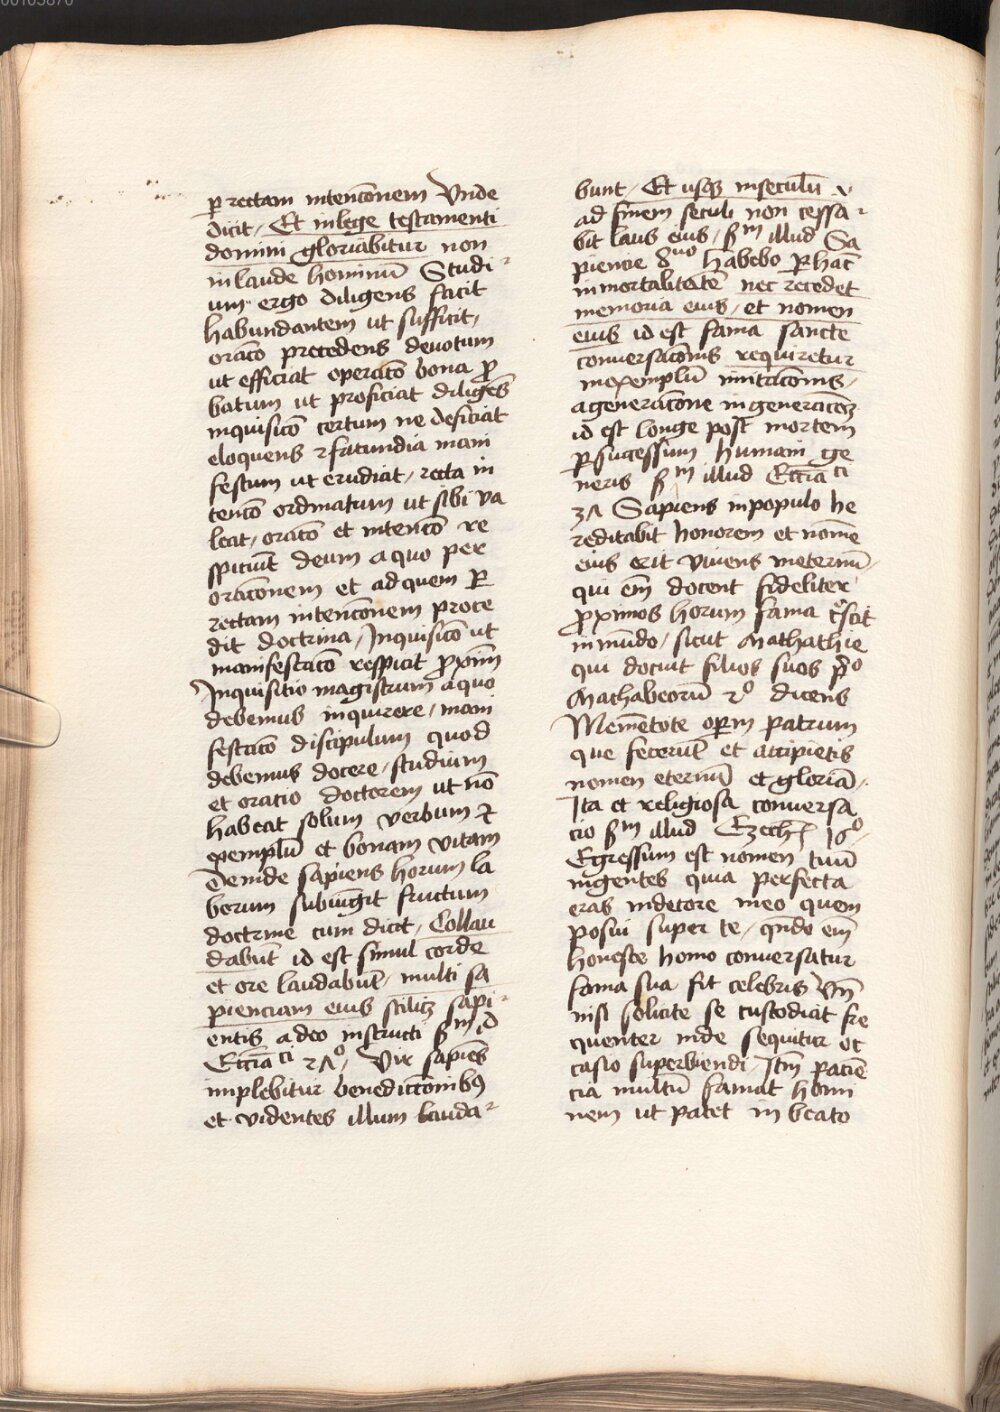 00103870
ꝑ rectam intencōnem Vnde
dicit / Et in lege testamenti
domini gloriabitur non
in laude hominū Studi
um ergo diligens facit
habundantem ut sufficit /
oracō precedens deuotum
ut efficiat operacō bona ꝓ
batum ut proficiat diligēs
inquisicō certum ne deficiat
eloquens ⁊ facundia mani
festum ut erudiat / recta in
tencō ordinatum ut sibi va
leat / oracō et intencō re
spiciūt deum a quo per
oracōnem et ad quem ꝑ
rectam intencōnem proce
dit doctrina / Inquisicō ut
manifestacō respicit ꝓximū
Inquisitio magistrum a quo
debemus inquirere / mani
festacō discipulum quod
debemus docere / studium
et oratio doctorem ut nō
habeat solum verbum ⁊
exemplū et bonam vitam
Deinde sapiens horum la
borum subiūgit fructum
doctrine cum dicit / Collau
dabūt id est simul corde
et ore laudabūt / multi sa
pienciam eius scilicꝫ sapi
entis adeo instructi ẜm id
Eccīaci 2Λº / Vir sapiēs
implebitur benediccōnibꝰ
et videntes illum lauda
bunt / Et usqꝫ in seculū
ad finem seculi non cessa
bit laus eius / ẜm illud Sa
piencie 8uo habebo ꝑ hāc
inmortalitatē nec recedet
memoria eius / et nomen
eius id est fama sancte
conuersacōnis requiretur
in exemplū imitacōnis /
a generacōne in generacōeꝫ
id est longe post mortem
ꝑ successum humani ge
neris ẜm illud Eccīaci
3Λ Sapiens in populo he
reditabit honorem et nomē
eius erit viuens in eternū /
qui em̄ docent fideliter
ꝓximos horum fama crescit
in mūdo / sicut Mathathie
qui docuit filios suos pͦ
Machabeorū 2º dicens
Memētote oꝑm patrum
que fecerūt et accipietis
nomen eternū et gloriā /
Ita et religiosa conuersa
cio ẜm illud Ezech 16º /
Egressum est nomen tuū
in gentes quia perfecta
eras in decore meo quem
posui super te / qn̄do em̄
honeste homo conuersatur
fama sua fit celebris Vn̄
nisi solicite se custodiat fre
quenter inde sequitur oc
casio superbiendi / Itm̄ paciē
cia multū famat homi
nem ut patet in beato